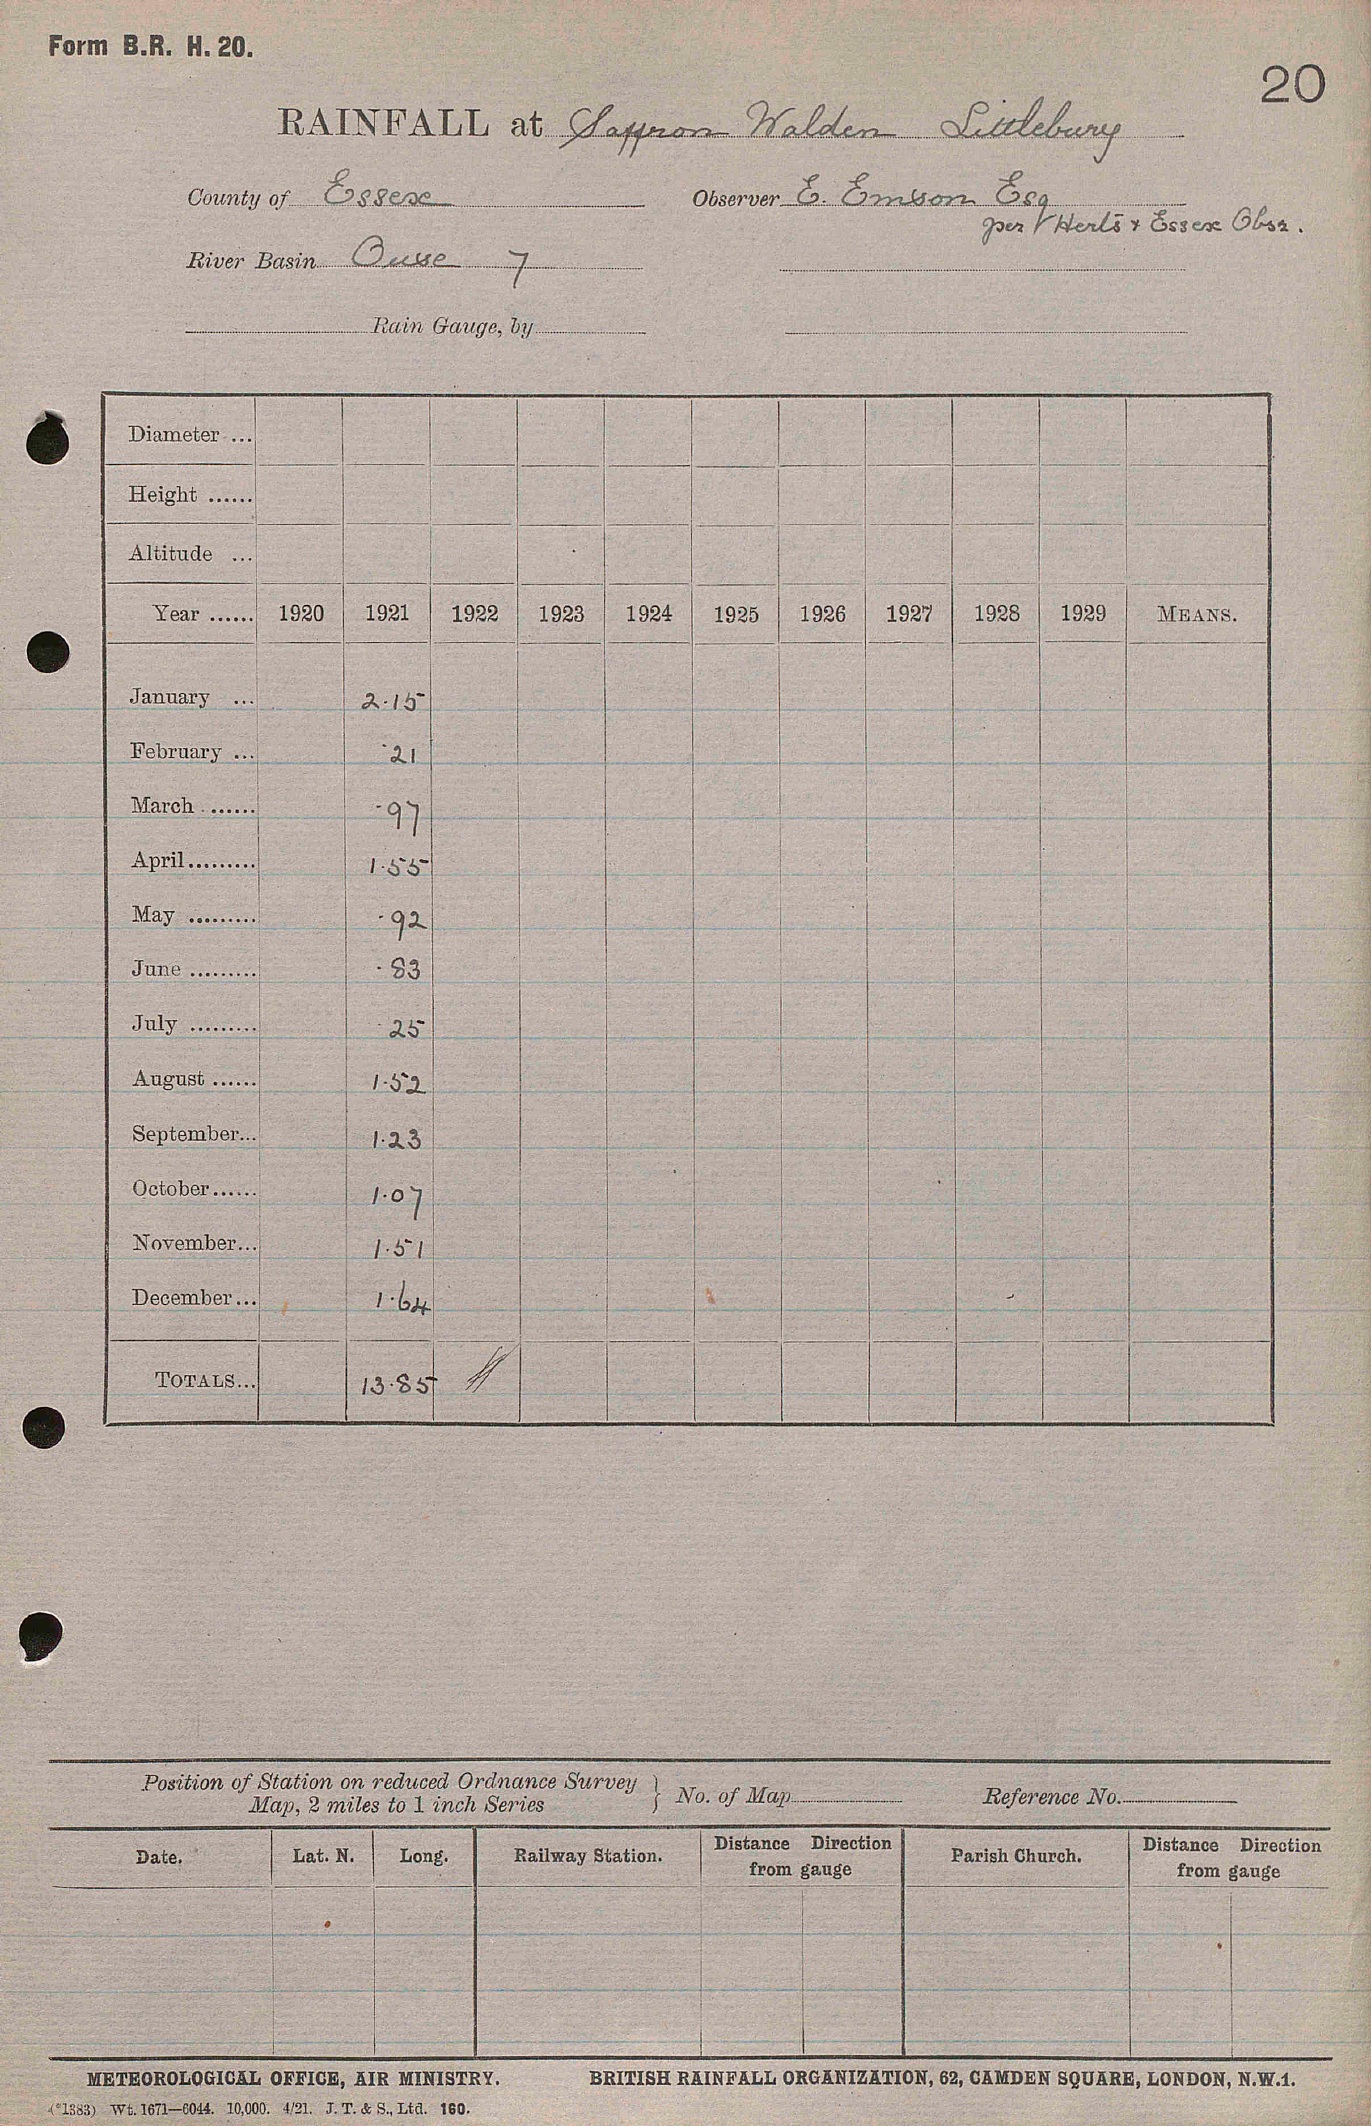 Form B.R. H. 20.
20
RAINFALL at Saffron Walden Littlebury
County of Essex Observer E. Emson Esq
per Herts & Essex Obsr.
River Basin Ouse 7
Rain Gauge, by
Diameter ...
Height ......
Altitude ...
Year ...... 1920 1921 1922 1923 1924 1925 1926 1927 1928 1929 MEANS.
January ... 2.15
February ... .21
March ....... .97
April......... 1.55
May ......... .92
June ......... .83
July ......... .25
August ...... 1.52
September... 1.23
October...... 1.07
November... 1.51
December... 1.64
TOTALS... 13.85
Position of Station on reduced Ordnance Survey
Map, 2 miles to 1 inch Series } No. of Map Reference No.
Date. Lat. N. Long. Railway Station. Distance Direction from gauge Parish Church. Distance Direction from gauge
METEOROLOGICAL OFFICE, AIR MINISTRY. BRITISH RAINFALL ORGANIZATION, 62, CAMDEN SQUARE, LONDON, N.W.1.
(*1383) Wt. 1671—6044. 10,000. 4/21. J. T. & S., Ltd. 160.